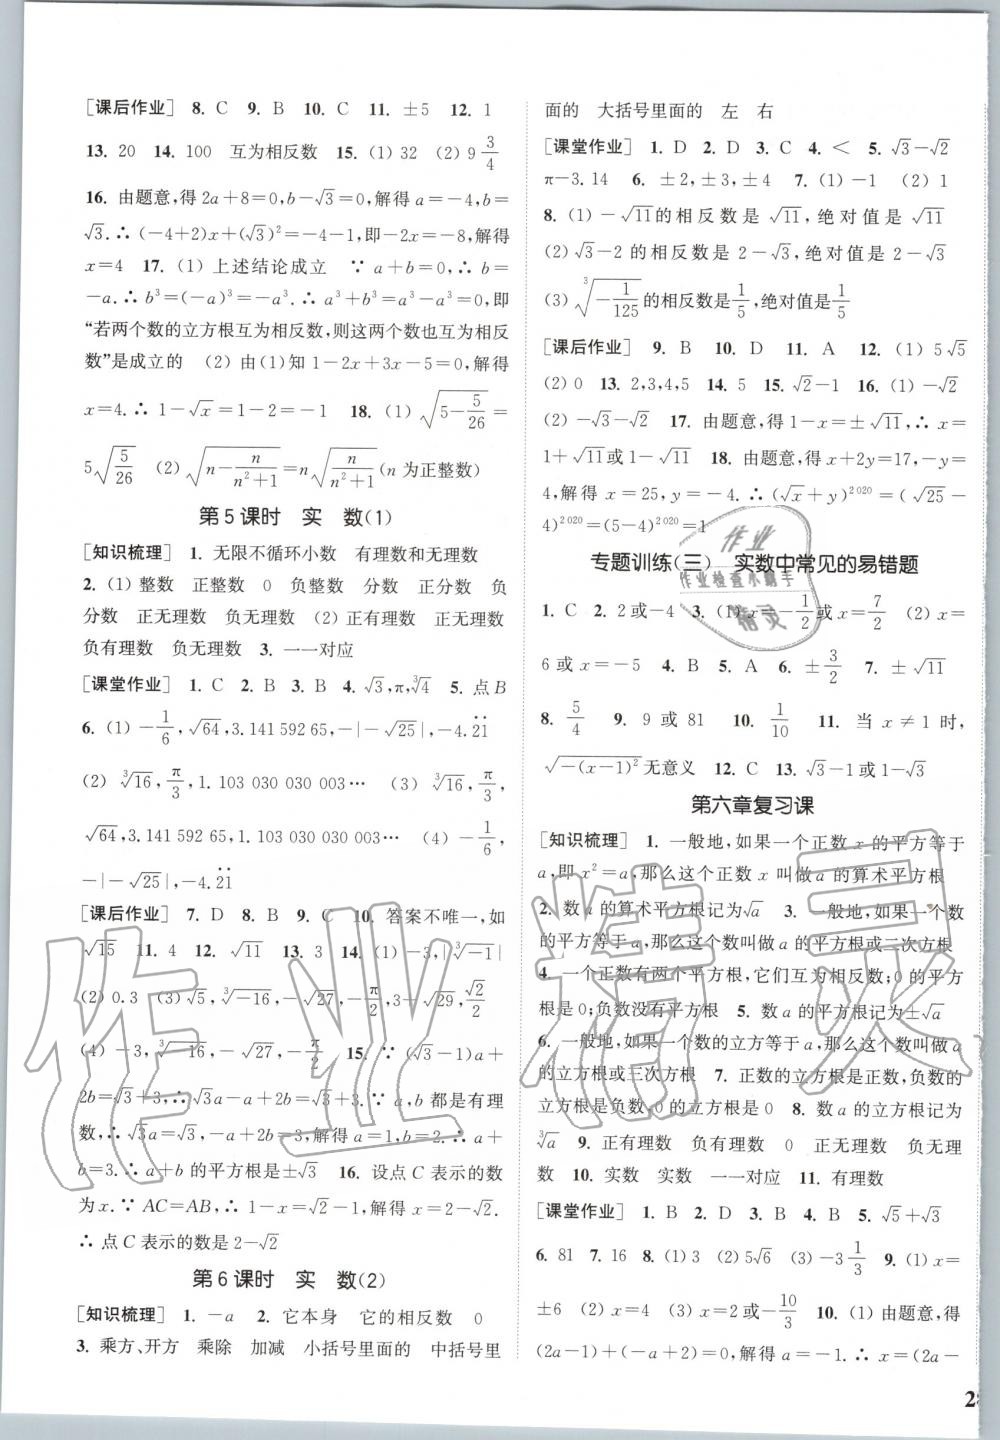 [课后作业] 8. C 9. B 10. C 11. ±5 12. 1
13. 20 14. 100 互为相反数 15. (1) 32 (2) 9 3/4
16. 由题意,得 2a+8=0,b-√3=0,解得 a=-4,b=
√3.∴ (-4+2)x+(√3)²=-4-1,即-2x=-8,解得
x=4 17. (1) 上述结论成立 ∵ a+b=0,∴ b=
-a.∴ b³=(-a)³=-a³.∴ a³+b³=a³-a³=0,即
“若两个数的立方根互为相反数,则这两个数也互为相反
数”是成立的 (2) 由(1)知 1-2x+3x-5=0,解得
x=4.∴ 1-√x=1-2=-1 18. (1) √(5-5/26)=
5√(5/26) (2) √(n-n/(n²+1))=n√(n/(n²+1))(n 为正整数)
第5课时 实 数(1)
[知识梳理] 1. 无限不循环小数 有理数和无理数
2. (1) 整数 正整数 0 负整数 分数 正分数 负
分数 正无理数 负无理数 (2) 正有理数 正无理数
负有理数 负无理数 3. 一一对应
[课堂作业] 1. C 2. B 3. B 4. √3,π,∛4 5. 点B
6. (1) -1/6,√64,3.141 592 65,-|-√25|,-4.2̇1̇
(2) ∛16,π/3,1.103 030 030 003… (3) ∛16,π/3,
√64,3.141 592 65,1.103 030 030 003… (4) -1/6,
-|-√25|,-4.2̇1̇
[课后作业] 7. D 8. B 9. C 10. 答案不唯一,如
√15 11. 4 12. √11 13. 3 14. (1) -3,|∛-1|
(2) 0.3 (3) √5,∛-16,-√27,-π/2,3-√29,√2/2
(4) -3,∛-16,-√27,-π/2 15. ∵ (√3-1)a+
2b=√3+3,∴ √3a-a+2b=√3+3.∵ a,b 都是有理
数,∴ √3a=√3,-a+2b=3,解得 a=1,b=2.∴ a+
b=3.∴ a+b 的平方根是±√3 16. 设点 C 表示的数
为 x.∵ AC=AB,∴ 1-x=√2-1,解得 x=2-√2.
∴ 点 C 表示的数是 2-√2
第6课时 实 数(2)
[知识梳理] 1. -a 2. 它本身 它的相反数 0
3. 乘方、开方 乘除 加减 小括号里面的 中括号里
面的 大括号里面的 左 右
[课堂作业] 1. D 2. D 3. C 4. < 5. √3-√2
π-3.14 6. ±2,±3,±4 7. (1) -1 (2) 1
8. (1) -√11的相反数是√11,绝对值是√11
(2) √3-2 的相反数是 2-√3,绝对值是 2-√3
(3) ∛(-1/125)的相反数是1/5,绝对值是1/5
[课后作业] 9. B 10. D 11. A 12. (1) 5√5
(2) 0 13. 2,3,4,5 14. 5 15. √2-1 16. (1) -√2
(2) -√3-√2 17. 由题意,得 1-x=±√11,∴ x=
1+√11或 1-√11 18. 由题意,得 x+2y=17,-y=
4,解得 x=25,y=-4.∴ (√x+y)²⁰²⁰=(√25-
4)²⁰²⁰=(5-4)²⁰²⁰=1
专题训练(三) 实数中常见的易错题
1. C 2. 2或-4 3. (1) x=-1/2或 x=7/2 (2) x=
6 或 x=-5 4. B 5. A 6. ±3/2 7. ±√11
8. 5/4 9. 9 或 81 10. 1/10 11. 当 x≠1 时,
√(-(x-1)²)无意义 12. C 13. √3-1或1-√3
第六章复习课
[知识梳理] 1. 一般地,如果一个正数 x 的平方等于
a,即 x²=a,那么这个正数 x 叫做 a 的算术平方根
2. 数 a 的算术平方根记为√a 3. 一般地,如果一个数
的平方等于 a,那么这个数叫做 a 的平方根或二次方根
4. 一个正数有两个平方根,它们互为相反数;0 的平方
根是 0;负数没有平方根 5. 数 a 的平方根记为±√a
6. 一般地,如果一个数的立方等于 a,那么这个数叫做 a
的立方根或三次方根 7. 正数的立方根是正数,负数的
立方根是负数,0 的立方根是 0 8. 数 a 的立方根记为
∛a 9. 正有理数 负有理数 0 正无理数 负无理
数 10. 实数 实数 一一对应 11. 有理数
[课堂作业] 1. B 2. D 3. B 4. B 5. √5+√3
6. 81 7. 16 8. (1) 3 (2) 5√6 (3) -3 1/3 9. (1) x=
±6 (2) x=4 (3) x=2或-10/3 10. (1) 由题意,得
(2a-1)+(-a+2)=0,解得 a=-1.∴ x=(2a-
作业
作业检查小助手
精灵
作业精灵